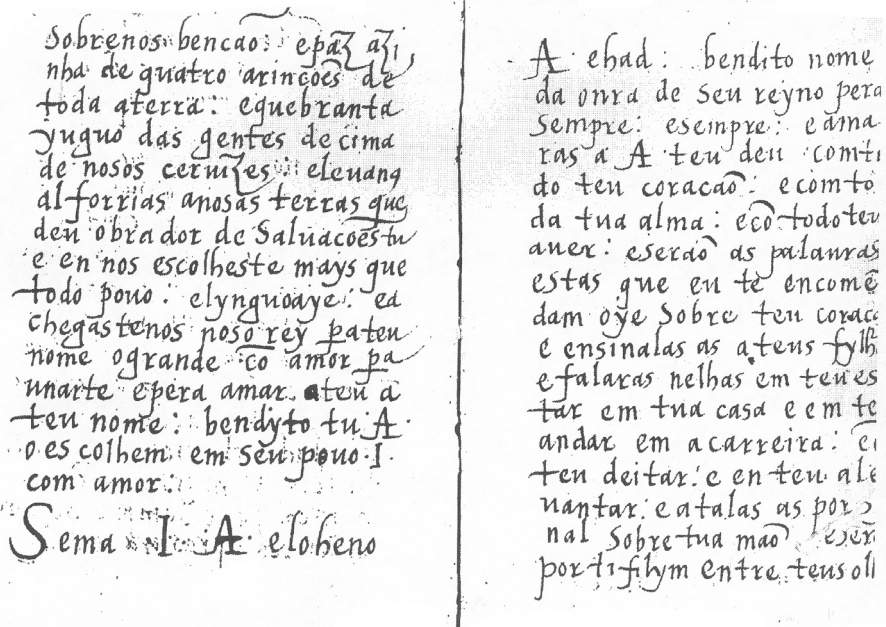 Sobrenos bencaõ: epaz azi
nha de quatro arincoẽs de
toda aterra: equebranta
yuguo das gentes de cima
de nosos ceruizes: eleuanq
alforrias anosas terras que
deu obrador de Saluacoẽs tu
e en nos escolheste mays que
todo pouo: elynguoaye: ea
chegastenos noso rey pateu
nome ogrande cõ amor pa
unarte epera amar ateu a
teu nome: bendyto tu A.
o es colhem em seu pouo I.
com amor:
Sema I. A. eloheno
A. ehad: bendito nome
da onra de seu reyno pera
Sempre: esempre: eama
ras a A. teu deu comt
do teu coracaõ: ecomto
da tua alma: ecõ todoteu
auer: eseraõ as palauras
estas que eu te encomẽ
dam oye Sobre teu corac
e ensinalas as ateus fylh
efalaras nelhas em teu es
tar em tua casa e em te
andar em acarreira: e
teu deitar: e en teu ale
uantar: eatalas as por
nal Sobre tua maõ eser
por tifilym entre teus oll